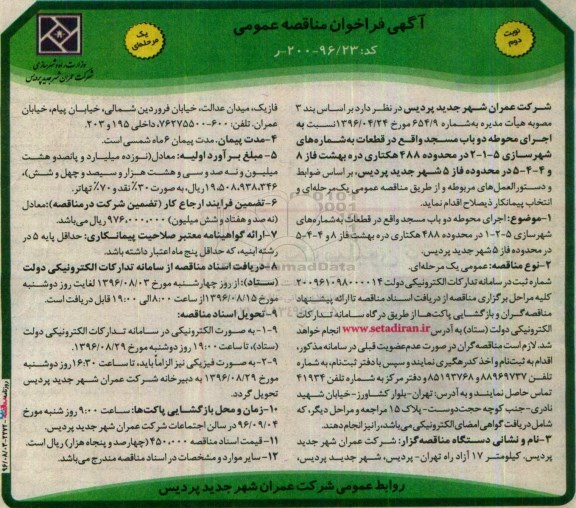 آگهی فراخوان مناقصه عمومی
کد: ۹۶/۲۳-۲۰۰-ر
نوبت
دوم
یک
مرحله‌ای
وزارت راه و شهرسازی
شرکت عمران شهر جدید پردیس
شرکت عمران شهر جدید پردیس در نظر دارد بر اساس بند ۳
مصوبه هیأت مدیره به‌شماره ۶۵۴/۹ مورخ ۱۳۹۶/۰۴/۲۴ نسبت به
اجرای محوطه دو باب مسجد واقع در قطعات به‌شماره‌های
شهرسازی ۵-۱-۲ در محدوده ۴۸۸ هکتاری دره بهشت فاز ۸
و ۴-۴-۵ در محدوده فاز ۵ شهر جدید پردیس، بر اساس ضوابط
و دستورالعمل‌های مربوطه و از طریق مناقصه عمومی یک مرحله‌ای و
انتخاب پیمانکار ذیصلاح اقدام نماید.
۱-موضوع: اجرای محوطه دو باب مسجد واقع در قطعات به‌شماره‌های
شهرسازی ۵-۲-۱ در محدوده ۴۸۸ هکتاری دره بهشت فاز ۸ و ۴-۴-۵
در محدوده فاز ۵ شهر جدید پردیس.
۲-نوع مناقصه: عمومی یک مرحله‌ای.
شماره ثبت در سامانه تدارکات الکترونیکی دولت ۲۰۰۹۶۱۰۹۸۰۰۰۰۱۴
کلیه مراحل برگزاری مناقصه از دریافت اسناد مناقصه تا ارائه پیشنهاد
مناقصه‌گران و بازگشایی پاکت‌ها از طریق درگاه سامانه تدارکات
الکترونیکی دولت (ستاد) به آدرس www.setadiran.ir انجام خواهد
شد. لازم است مناقصه‌گران در صورت عدم عضویت قبلی در سامانه مذکور،
اقدام به ثبت‌نام و اخذ کد رهگیری نمایند و سپس با دفتر ثبت‌نام، به شماره
تلفن ۸۸۹۶۹۷۳۷ و ۸۵۱۹۳۷۶۸ و دفتر مرکز به شماره تلفن ۴۱۹۳۴
تماس حاصل نمایند و به آدرس: تهران-بلوار کشاورز-خیابان شهید
نادری-جنب کوچه حجت‌دوست- پلاک ۱۵ مراجعه و مراحل دیگر، که
شامل دریافت گواهی امضای الکترونیکی می‌باشد، را نیز انجام دهند.
۳-نام و نشانی دستگاه مناقصه‌گزار: شرکت عمران شهر جدید
پردیس. کیلومتر ۱۷ آزاد راه تهران- پردیس، شهر جدید پردیس،
فاز یک، میدان عدالت، خیابان فروردین شمالی، خیابان پیام، خیابان
عمران. تلفن: ۶۰۰-۷۶۲۷۵۵۰۰، داخلی ۱۹۵ و ۲۰۳.
۴-مدت پیمان: مدت پیمان ۶ ماه شمسی است.
۵-مبلغ برآورد اولیه: معادل (نوزده میلیارد و پانصد و هشت
میلیون و نه صد و سی و هشت هزار و سیصد و چهل و شش)،
۱۹،۵۰۸،۹۳۸،۳۴۶ ریال، به صورت ۳۰٪ نقد و ۷۰٪ تهاتر.
۶-تضمین فرایند ارجاع کار (تضمین شرکت در مناقصه): معادل
(نه صد و هفتاد و شش میلیون) ۹۷۶،۰۰۰،۰۰۰ ریال می‌باشد.
۷-ارائه گواهینامه معتبر صلاحیت پیمانکاری: حداقل پایه ۵ در
رشته ابنیه، که حداقل پنج ماه اعتبار داشته باشد.
۸-دریافت اسناد مناقصه از سامانه تدارکات الکترونیکی دولت
(ستاد): از روز چهارشنبه مورخ ۱۳۹۶/۰۸/۰۳ لغایت روز دوشنبه
مورخ ۱۳۹۶/۰۸/۱۵ از ساعت ۸:۰۰ الی ۱۹:۰۰ قابل دریافت است.
۹-تحویل اسناد مناقصه:
۹-۱- به صورت الکترونیکی در سامانه تدارکات الکترونیکی دولت
(ستاد)، تا ساعت ۱۹:۰۰ روز دوشنبه مورخ ۱۳۹۶/۰۸/۲۹.
۹-۲- به صورت فیزیکی نیز الزاماً باید، تا ساعت ۱۶:۳۰ روز دوشنبه
مورخ ۱۳۹۶/۰۸/۲۹ به دبیرخانه شرکت عمران شهر جدید پردیس
تحویل گردد.
۱۰-زمان و محل بازگشایی پاکت‌ها: ساعت ۹:۰۰ روز شنبه مورخ
۹۶/۰۹/۰۴ در سالن اجتماعات شرکت عمران شهر جدید پردیس.
۱۱- قیمت اسناد مناقصه ۴۵۰،۰۰۰ (چهارصد و پنجاه هزار) ریال است.
۱۲- سایر موارد و مشخصات در اسناد مناقصه مندرج می‌باشد.
روابط عمومی شرکت عمران شهر جدید پردیس